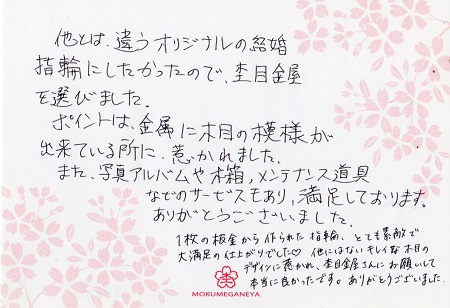 他とは、違うオリジナルの結婚
指輪にしたかったので、杢目金屋
を選びました。
ポイントは、金属に木目の模様が
出来ている所に、惹かれました。
また、写真アルバムや木箱、メンテナンス道具
などのサービスもあり、満足しております。
ありがとうございました。
1枚の板金から作られた指輪、とても素敵で
大満足の仕上がりでした♡ 他にはないキレイな木目の
デザインに惹かれ、杢目金屋さんにお願いして
本当に良かったです。ありがとうございました。
MOKUMEGANEYA